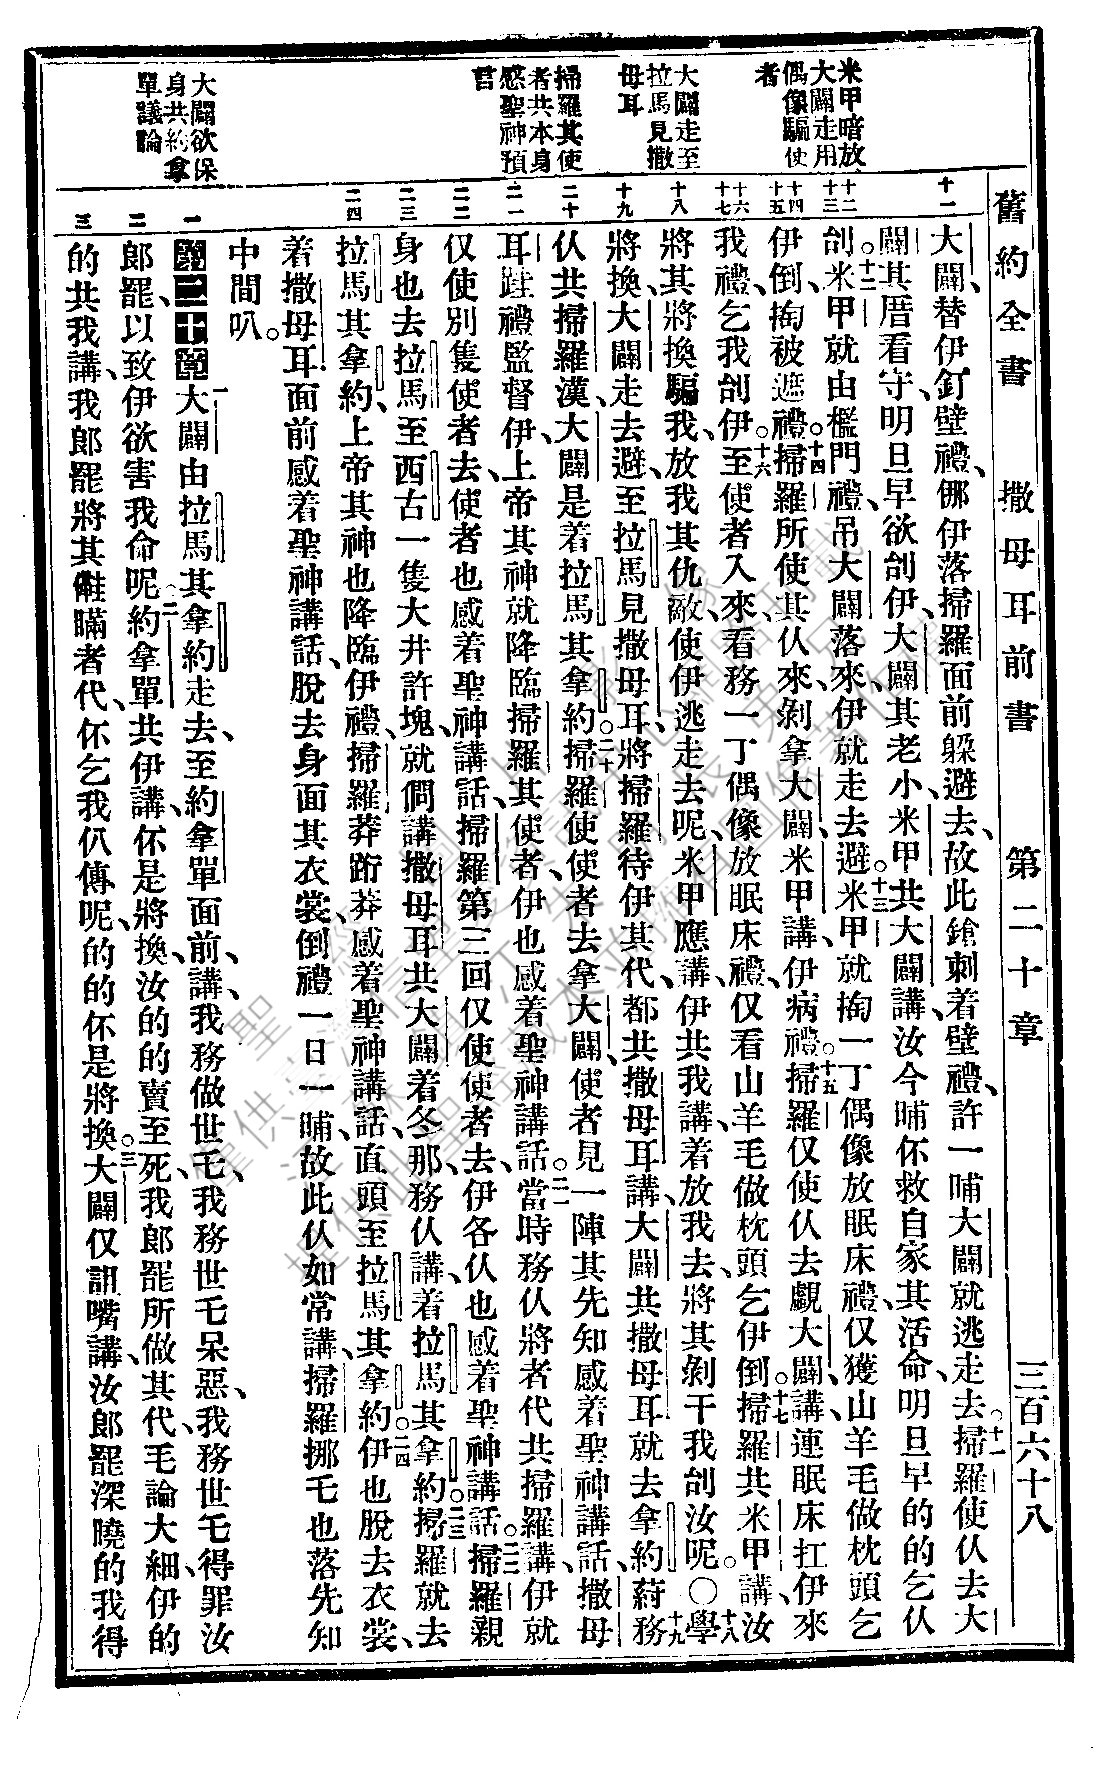 舊約全書 撒母耳前書 第二十章 三百六十八
米甲暗放
大闢走用
偶像騙使
者
大闢走至
拉馬見撒
母耳
掃羅其使
者共本身
感聖神預
言
大闢欲保
身共約拿
單議論
十一
十二
十三
十四
十五
十六
十七
十八
十九
二十
二一
二二
二三
二四
一
二
三
大闢、替伊釘壁禮、儺伊落掃羅面前躲避去、故此鎗刺着壁禮、許一晡大闢就逃走去。十一掃羅使仈去大
闢其厝看守、明旦早欲刣伊、大闢其老小米甲共大闢講、汝今晡伓救自家其活命、明旦早的的乞仈
刣。十二米甲就由檻門禮、吊大闢落來、伊就走去避。十三米甲就掏一丁偶像放眠床禮、仅獲山羊毛做枕頭乞
伊倒、掏被遮禮。十四掃羅所使其仈來、剝拿大闢、米甲講、伊病禮。十五掃羅仅使仈去覷大闢、講、連眠床扛伊來
我禮、乞我刣伊。十六至使者入來、看務一丁偶像放眠床禮、仅看山羊毛做枕頭、乞伊倒。十七掃羅共米甲講、汝
將其將換騙我、放我其仇敵、使伊逃走去呢、米甲應講、伊共我講、着放我去、將其剝干我刣汝呢。○十八學
將換、大闢走去避、至拉馬見撒母耳、將掃羅待伊其代、都共撒母耳講、大闢共撒母耳就去拿約蒔。十九務
仈共掃羅漢、大闢是着拉馬其拿約。二十掃羅使使者去拿大闢、使者見一陣其先知感着聖神講話、撒母
耳跬禮監督伊、上帝其神就降臨掃羅其使者、伊也感着聖神講話。二一當時務仈將者代共掃羅講、伊就
仅使別隻使者去、使者也感着聖神講話、掃羅第三回仅使使者去、伊各仈也感着聖神講話。二二掃羅親
身也去拉馬、至西古一隻大井許塊、就僩講、撒母耳共大闢着冬那、務仈講、着拉馬其拿約。二三掃羅就去
拉馬其拿約、上帝其神也降臨伊禮、掃羅莽跡莽感着聖神講話、直頭至拉馬其拿約。二四伊也脫去衣裳、
着撒母耳面前感着聖神講話、脫去身面其衣裳、倒禮一日一晡、故此仈如常講、掃羅挪乇也落先知
中間叭。
第二十章 一大闢由拉馬其拿約走去、至約拿單面前、講、我務做世乇、我務世乇呆惡、我務世乇得罪汝
郎罷、以致伊欲害我命呢。二約拿單共伊講、伓是將換、汝的的賣至死、我郎罷所做其代、毛論大細、伊的
的共我講、我郎罷將其𠆧瞞者代、伓乞我仈傳呢、的的伓是將換。三大闢仅詛嘴講、汝郎罷深曉的我得